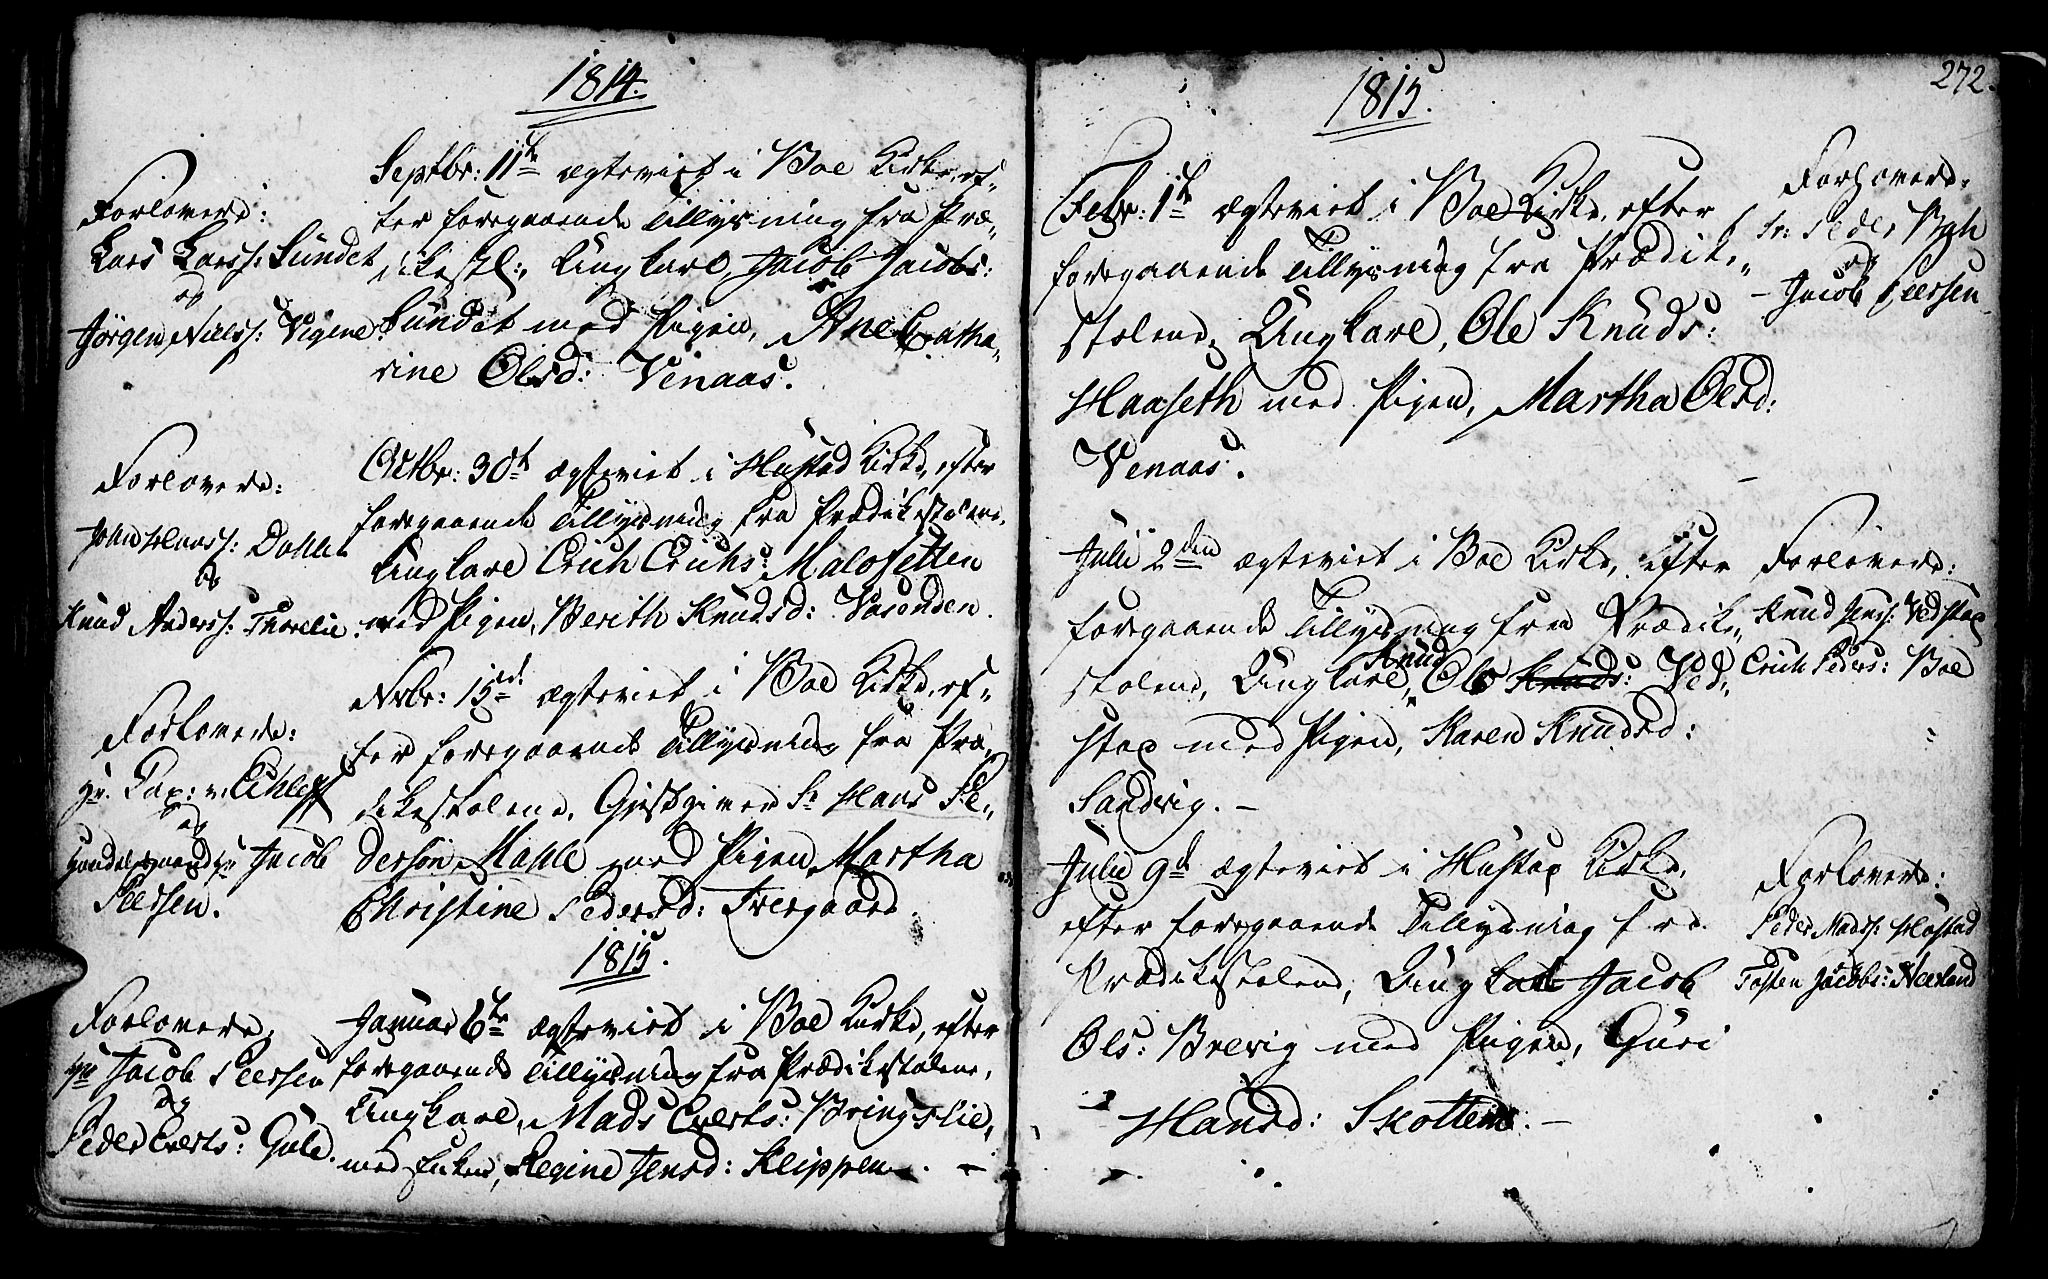 1814.
Forlovere:
Lars Larss: Sundet
og
Jørgen Nielss: Vigene.
Septbr: 11te ægteviet i Boe Kirke, ef-
ter foregaaende Tillysning fra Præ-
dikestl:, Ungkarl Jacob Jacobs:
Sundet med Pigen, Ane Catha-
rine Olsd: Venaas.
Forlovere:
John Hanss: Dahle
og
Knud Anderss: Thorelie.
Octbr: 30t ægteviet i Hustad Kirke, efter
foregaaende Tillysning fra Prædikestolene,
Ungkarl Erich Erichs: Malosetten
med Pigen, Berith Knudsd: Vasenden.
Forlovere:
Hr. Cap: v. Ehleff
og
Handelsmand Hr Jacob
Peersen.
Nvbr: 15de ægteviet i Boe Kirke, ef-
ter foregaaende Tillysning fra Præ-
dikestolene, Gjestgiver Sr Hans Pe-
dersøn Mahle med Pigen, Martha
Christine Pedersd: Tvergaard
1815.
Forlovere,
Hr Jacob Peersen
og
Peder Everts: Gule.
Januar 6te ægteviet i Boe Kirke, efter
foregaaende Tillysning fra Prædikestolene,
Ungkarl, Mads Everts: Bringslie,
med Enken, Regine Jensd: Klippen. -
272.
1815.
Febr: 1te ægteviet i Boe Kirke, efter
foregaaende Tillysning fra Prædike-
stolene, Ungkarl, Ole Knuds:
Haaseth med Pigen, Martha Olsd:
Venaas.
Forlovere
Sr: Peder Bgh
og
- Jacob Peersen
Julii 2den ægteviet i Boe Kirke, efter
foregaaende Tillysning fra Prædike-
stolene, Ungkarl, Knud Ols Knuds: Ved-
stap med Pigen, Karen Knudsd:
Sandvig. -
Forlovere:
Knud Jens: Vedstap
og
Erich Peders: Boe
Julii 9de ægteviet i Hustap Kirke,
efter foregaaende Tillysning fra
Prædikestolene, Ungkarl Jacob
Ols: Brevig med Pigen, Guri
Hansd: Skotten. -
Forlovere:
Peder Madss: Hostad
Tosten Jacobs: Neeland